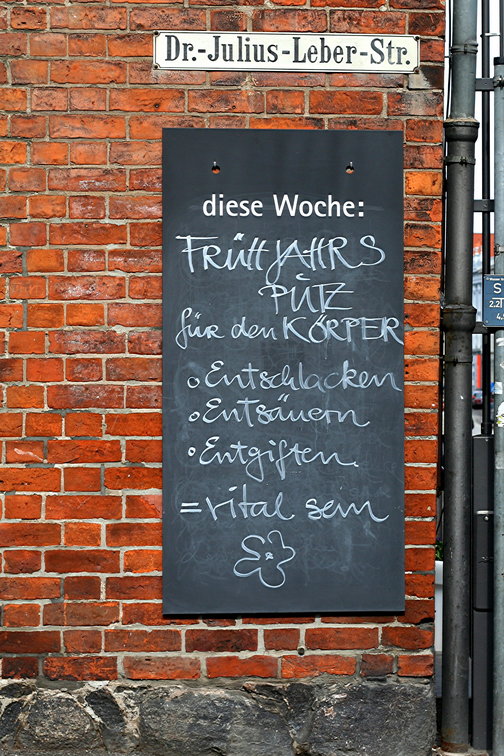 Dr.-Julius-Leber-Str.
diese Woche:
FRÜHJAHRS
PUTZ
für den KÖRPER
o Entschlacken
o Entsäuern
o Entgiften.
= vital sein
S
2.2
4.